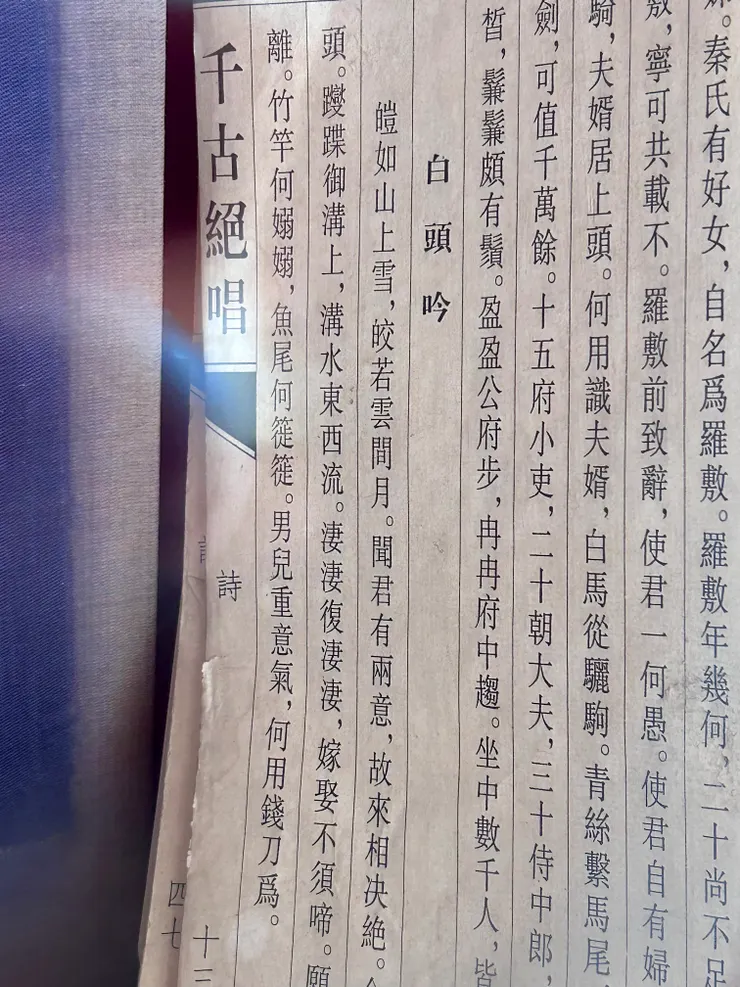 秦氏有好女，自名爲羅敷。羅敷年幾何，二十尚不足
敷，寧可共載不。羅敷前致辭，使君一何愚。使君自有婦
騎，夫婿居上頭。何用識夫婿，白馬從驪駒。青絲繫馬尾，
劍，可值千萬餘。十五府小吏，二十朝大夫，三十侍中郎，
皙，鬑鬑頗有鬚。盈盈公府步，冉冉府中趨。坐中數千人，皆
白頭吟
皚如山上雪，皎若雲間月。聞君有兩意，故來相決絶。
頭。躞蹀御溝上，溝水東西流。淒淒復淒淒，嫁娶不須啼。願
離。竹竿何嫋嫋，魚尾何簁簁。男兒重意氣，何用錢刀爲。
千古絕唱
詩
十三
四七